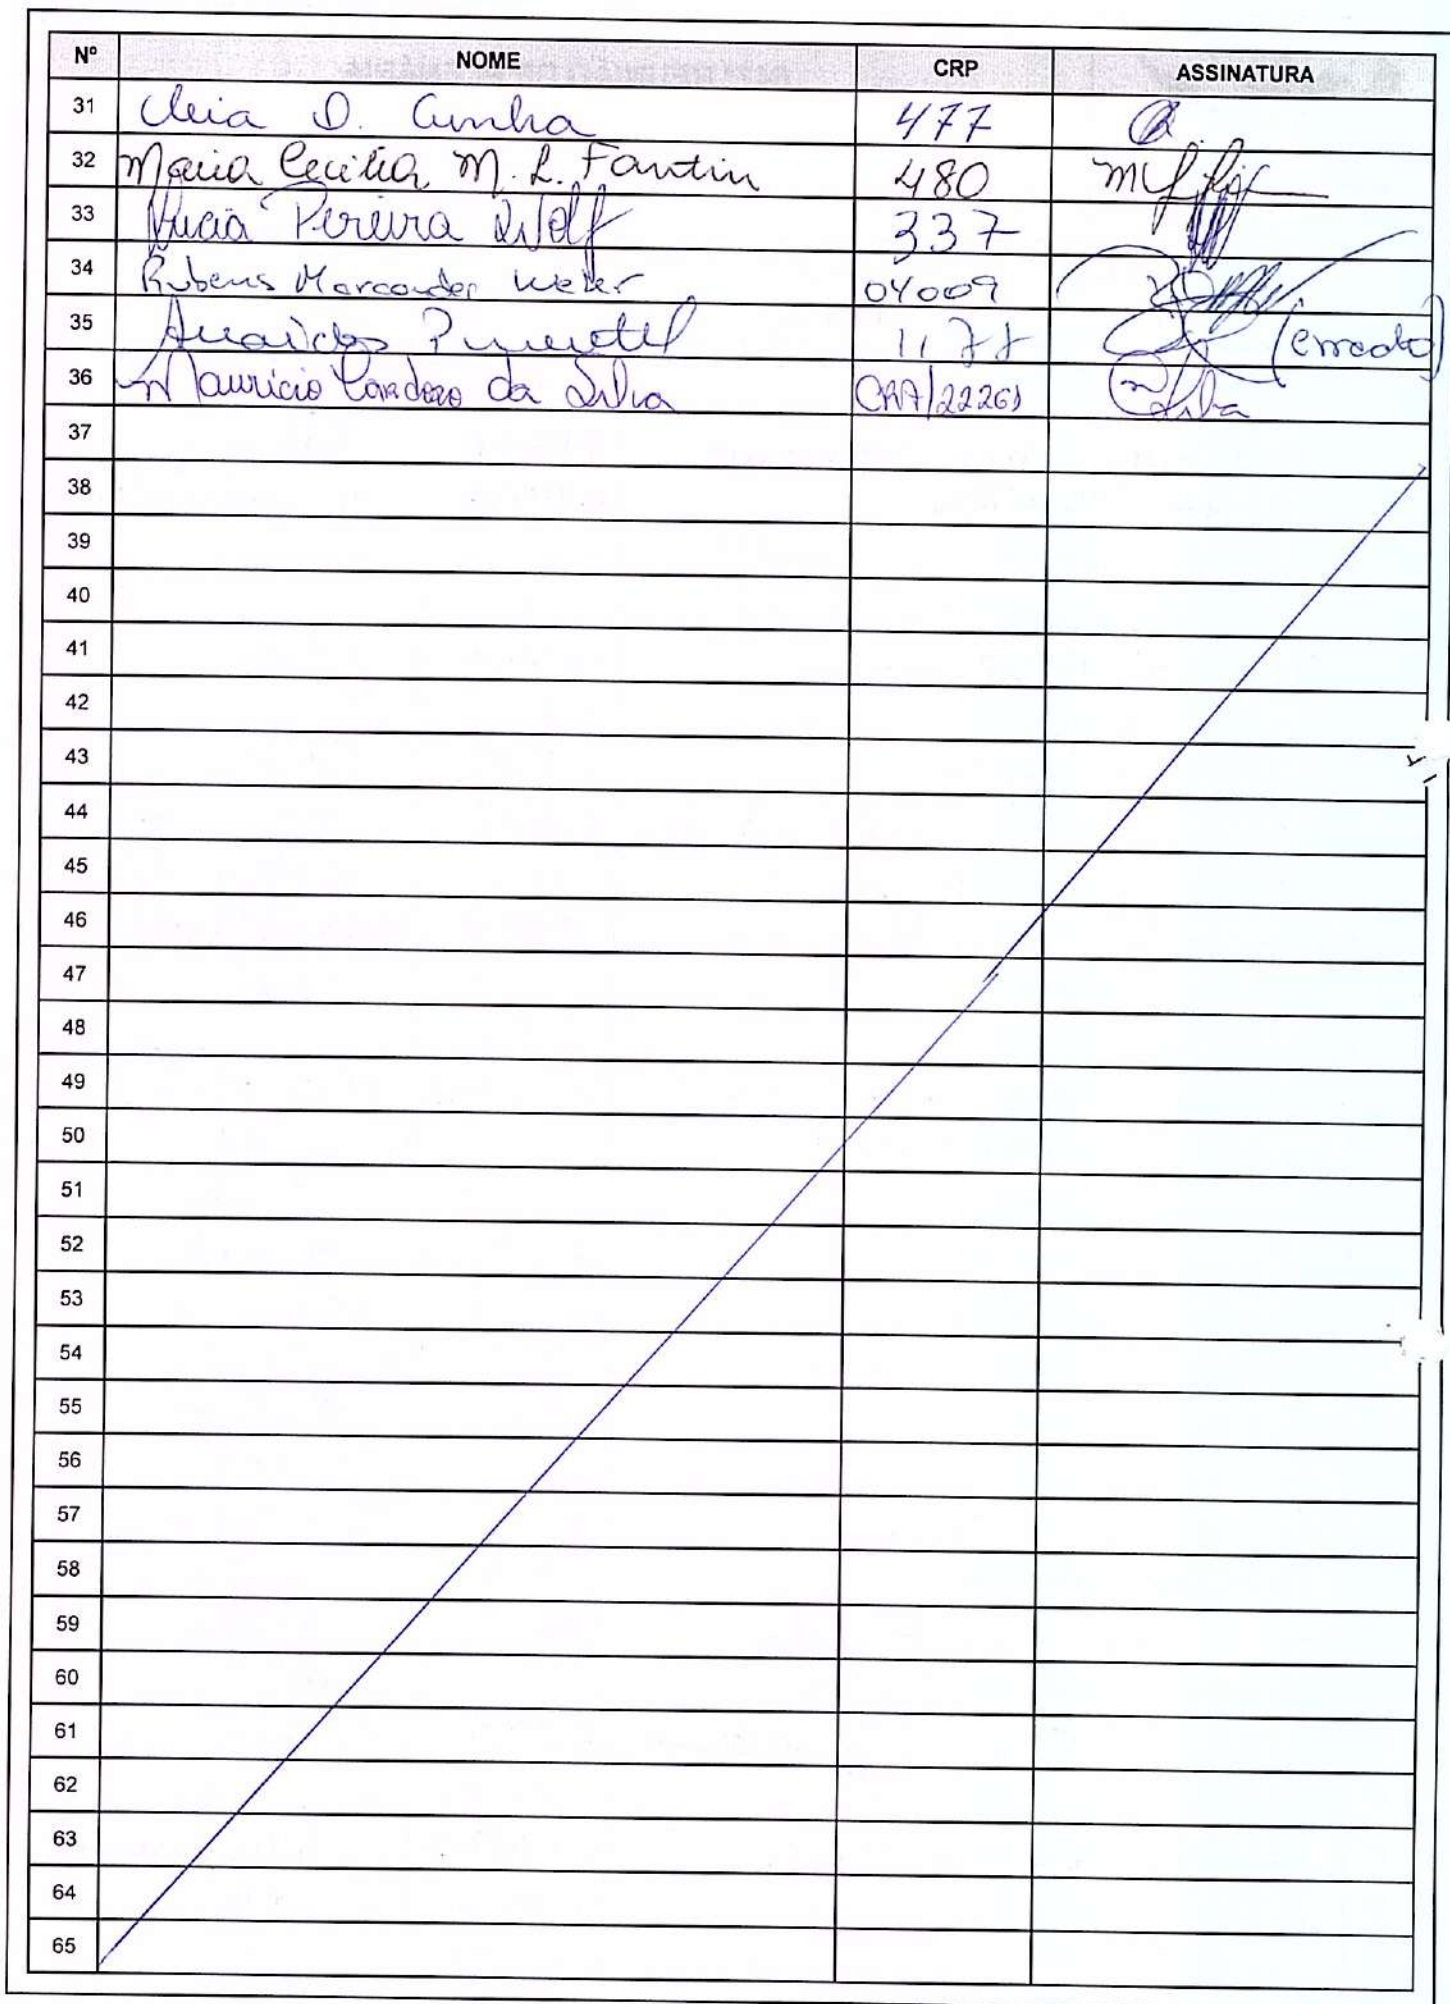 Nº NOME CRP ASSINATURA
31 Cleia D. Cunha 477
32 Maria Cecilia M. L. Fantin 480
33 Lucia Pereira Wolf 337
34 Rubens Marcondes Weber 04009
35 Pimentel (errado)
36 Mauricio Cardozo da Silva Silva
37
38
39
40
41
42
43
44
45
46
47
48
49
50
51
52
53
54
55
56
57
58
59
60
61
62
63
64
65